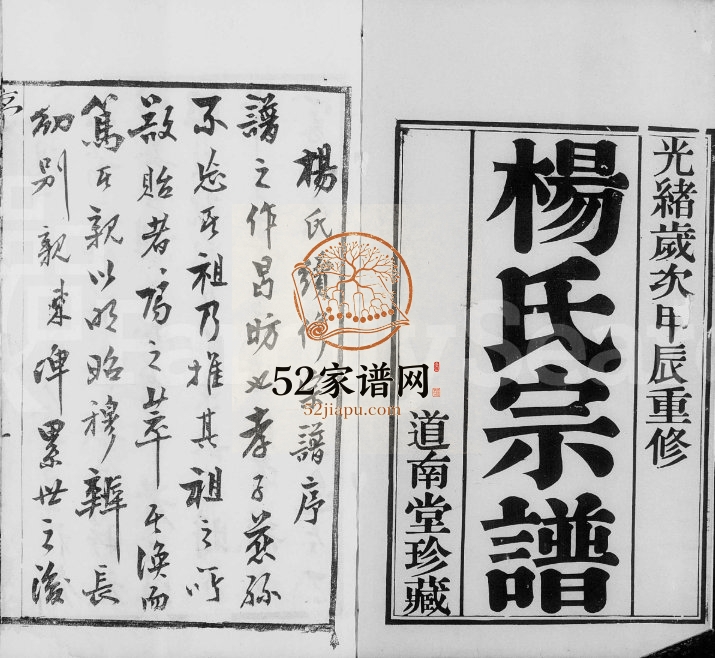 光緒歲次甲辰重修
楊氏宗譜
道南堂珍藏
楊氏續修宗譜序
譜之作昌昉乎孝子慈孫
不忘其祖乃推其祖之所
散貽者為之萃其渙而
篤其親以明昭穆辨長
幼別親疎俾累世之後
52家谱网
52jiapu.com